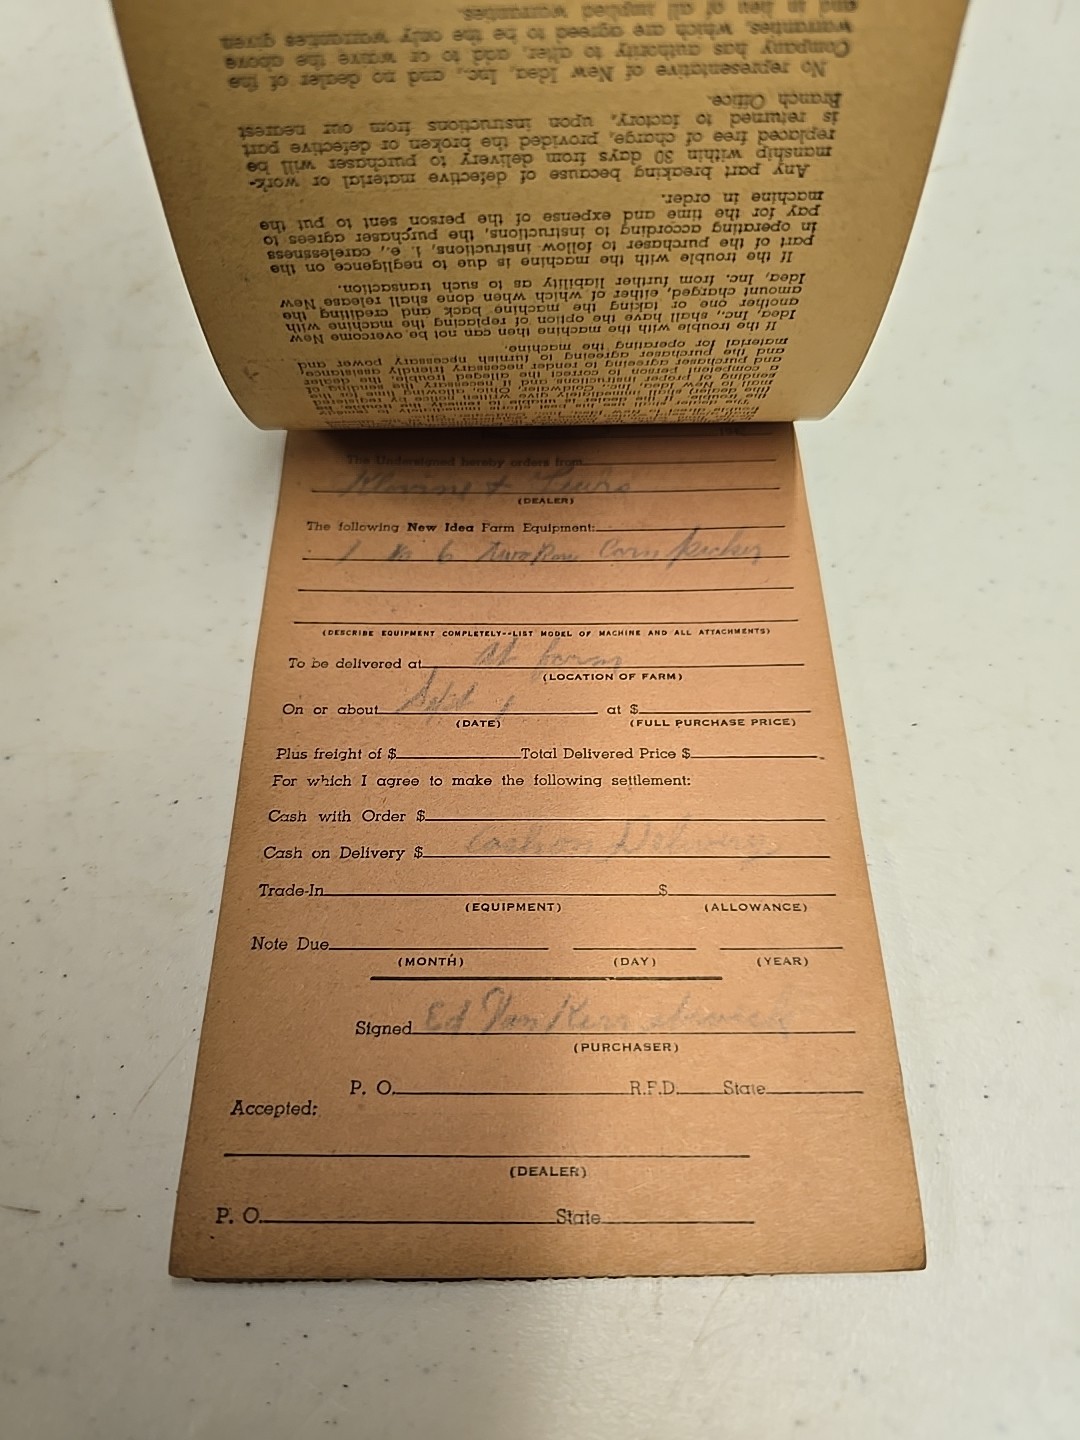 and in lieu of all implied warranties.
warranties, which are agreed to be the only warranties given
Company has authority to alter, add to or waive the above
No representative of New Idea, Inc., and no dealer of the
Branch Office.
is returned to factory, upon instructions from our nearest
replaced free of charge, provided the broken or defective part
manship within 30 days from delivery to purchaser will be
Any part breaking because of defective material or work-
machine in order.
pay for the time and expense of the person sent to put the
in operating according to instructions, the purchaser agrees to
part of the purchaser to follow instructions, i. e., carelessness
If the trouble with the machine is due to negligence on the
Idea, Inc. from further liability as to such transaction.
amount charged, either of which when done shall release New
another one or taking the machine back and crediting the
Idea, Inc., shall have the option of replacing the machine with
If the trouble with the machine then can not be overcome New
material for operating the machine.
and the purchaser agreeing to furnish necessary power and
and purchaser agreeing to render necessary friendly assistance,
a competent person to correct the alleged trouble, the dealer
sending of proper instructions and if necessary the sending of
mail to New Idea, Inc., Coldwater, Ohio, allowing time for the
the dealer shall immediately give written notice by registered
the trouble. If the dealer is unable to remedy the trouble,
The Undersigned hereby orders from
(DEALER)
The following New Idea Farm Equipment:
1 No 6 Two Row Corn picker
(DESCRIBE EQUIPMENT COMPLETELY--LIST MODEL OF MACHINE AND ALL ATTACHMENTS)
To be delivered at At farm
(LOCATION OF FARM)
On or about Sept 1 at $
(DATE) (FULL PURCHASE PRICE)
Plus freight of $ Total Delivered Price $
For which I agree to make the following settlement:
Cash with Order $
Cash on Delivery $ Cash on Delivery
Trade-In $
(EQUIPMENT) (ALLOWANCE)
Note Due
(MONTH) (DAY) (YEAR)
Signed Ed Van
(PURCHASER)
P. O. R.F.D. State
Accepted:
(DEALER)
P. O. State